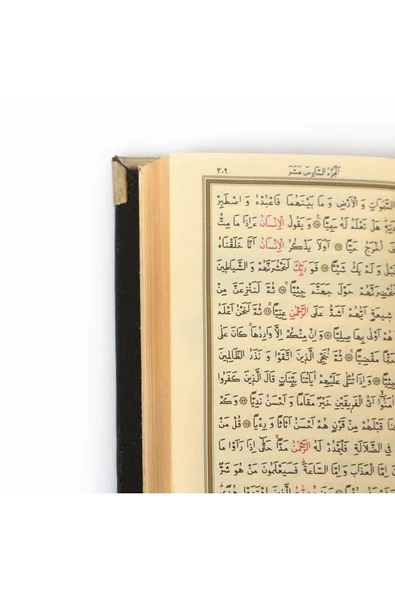 اَلْجُزْءُ السَّادِسَ عَشَرَ ٣٠٩
السَّمٰوَاتِ وَالْاَرْضِ وَمَا بَيْنَهُمَا فَاعْبُدْهُ وَاصْطَبِرْ
هَلْ تَعْلَمُ لَهُ سَمِيًّا وَيَقُولُ الْاِنْسَانُ ءَاِذَا مَا مِتُّ
اُخْرَجُ حَيًّا اَوَلَا يَذْكُرُ الْاِنْسَانُ اَنَّا خَلَقْنَاهُ
وَلَمْ يَكُ شَيْئًا فَوَرَبِّكَ لَنَحْشُرَنَّهُمْ وَالشَّيَاطِينَ
لَنُحْضِرَنَّهُمْ حَوْلَ جَهَنَّمَ جِثِيًّا ثُمَّ لَنَنْزِعَنَّ مِنْ
شِيعَةٍ اَيُّهُمْ اَشَدُّ عَلَى الرَّحْمٰنِ عِتِيًّا ثُمَّ لَنَحْنُ اَعْلَمُ
هُمْ اَوْلٰى بِهَا صِلِيًّا وَاِنْ مِنْكُمْ اِلَّا وَارِدُهَا كَانَ عَلٰى
مَقْضِيًّا ثُمَّ نُنَجِّي الَّذِينَ اتَّقَوْا وَنَذَرُ الظَّالِمِينَ
وَاِذَا تُتْلٰى عَلَيْهِمْ اٰيَاتُنَا بَيِّنَاتٍ قَالَ الَّذِينَ كَفَرُوا
اٰمَنُوا اَيُّ الْفَرِيقَيْنِ خَيْرٌ مَقَامًا وَاَحْسَنُ نَدِيًّا وَكَمْ
قَبْلَهُمْ مِنْ قَرْنٍ هُمْ اَحْسَنُ اَثَاثًا وَرِءْيًا قُلْ مَنْ
فِي الضَّلَالَةِ فَلْيَمْدُدْ لَهُ الرَّحْمٰنُ مَدًّا حَتّٰى اِذَا رَاَوْا مَا
اِمَّا الْعَذَابَ وَاِمَّا السَّاعَةَ فَسَيَعْلَمُونَ مَنْ هُوَ شَرٌّ
الَّذِينَ اهْتَدَوْا هُدًى